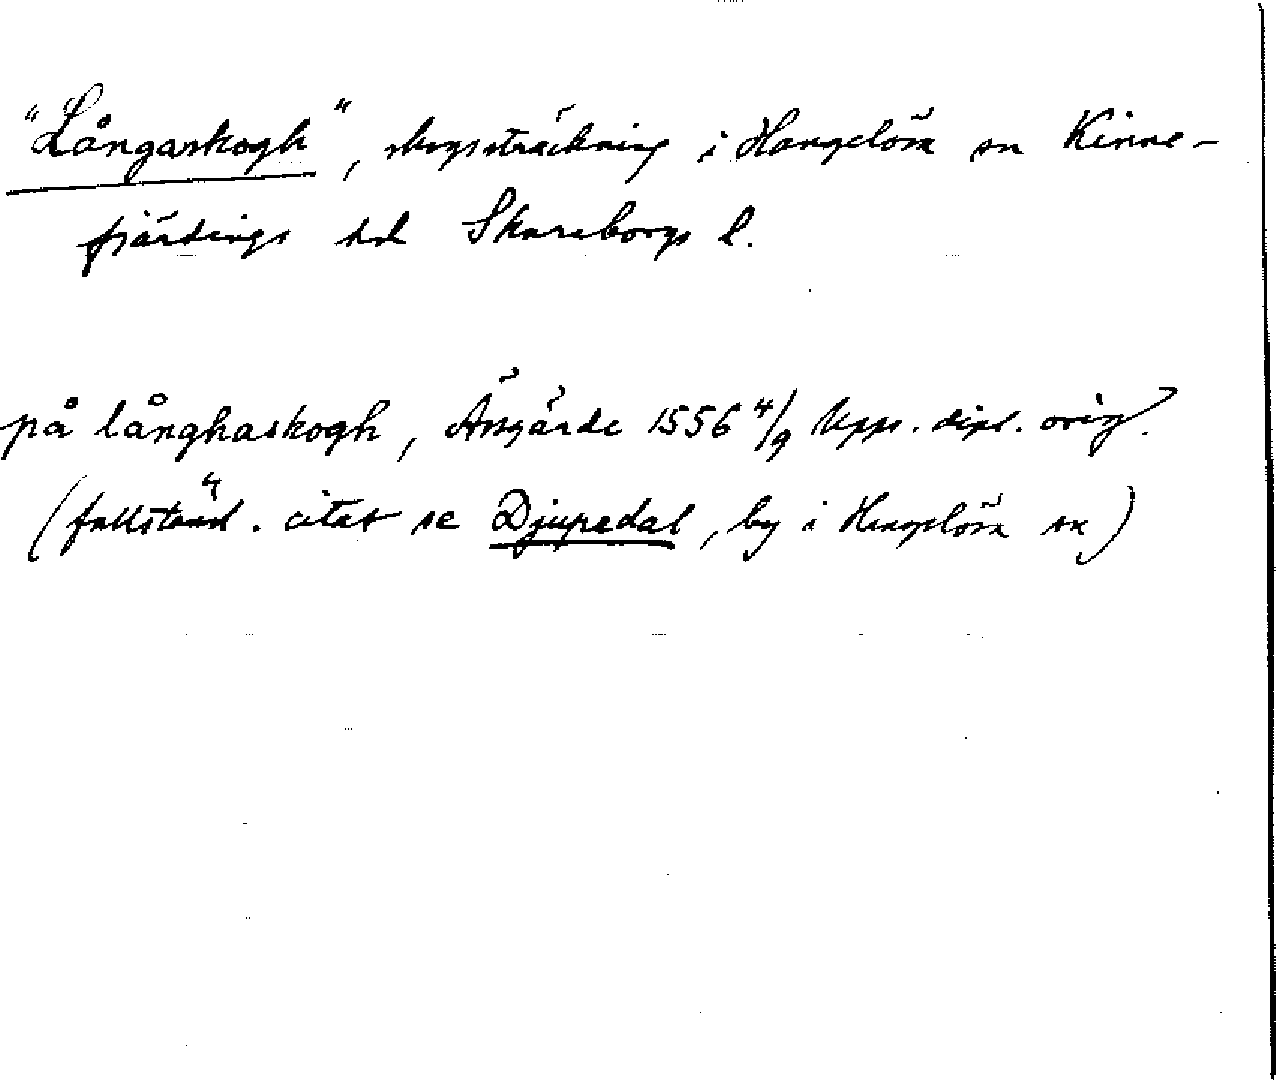 "Långaskogh", skogssträckning i Hangelösa sn Kinne-
fjärdings hd Skaraborgs l.
på långhaskogh, Äsgärde 1556 4/9 Upps. dipl. orig.
(fullständ. citat se Djupedal, by i Hangelösa sn)